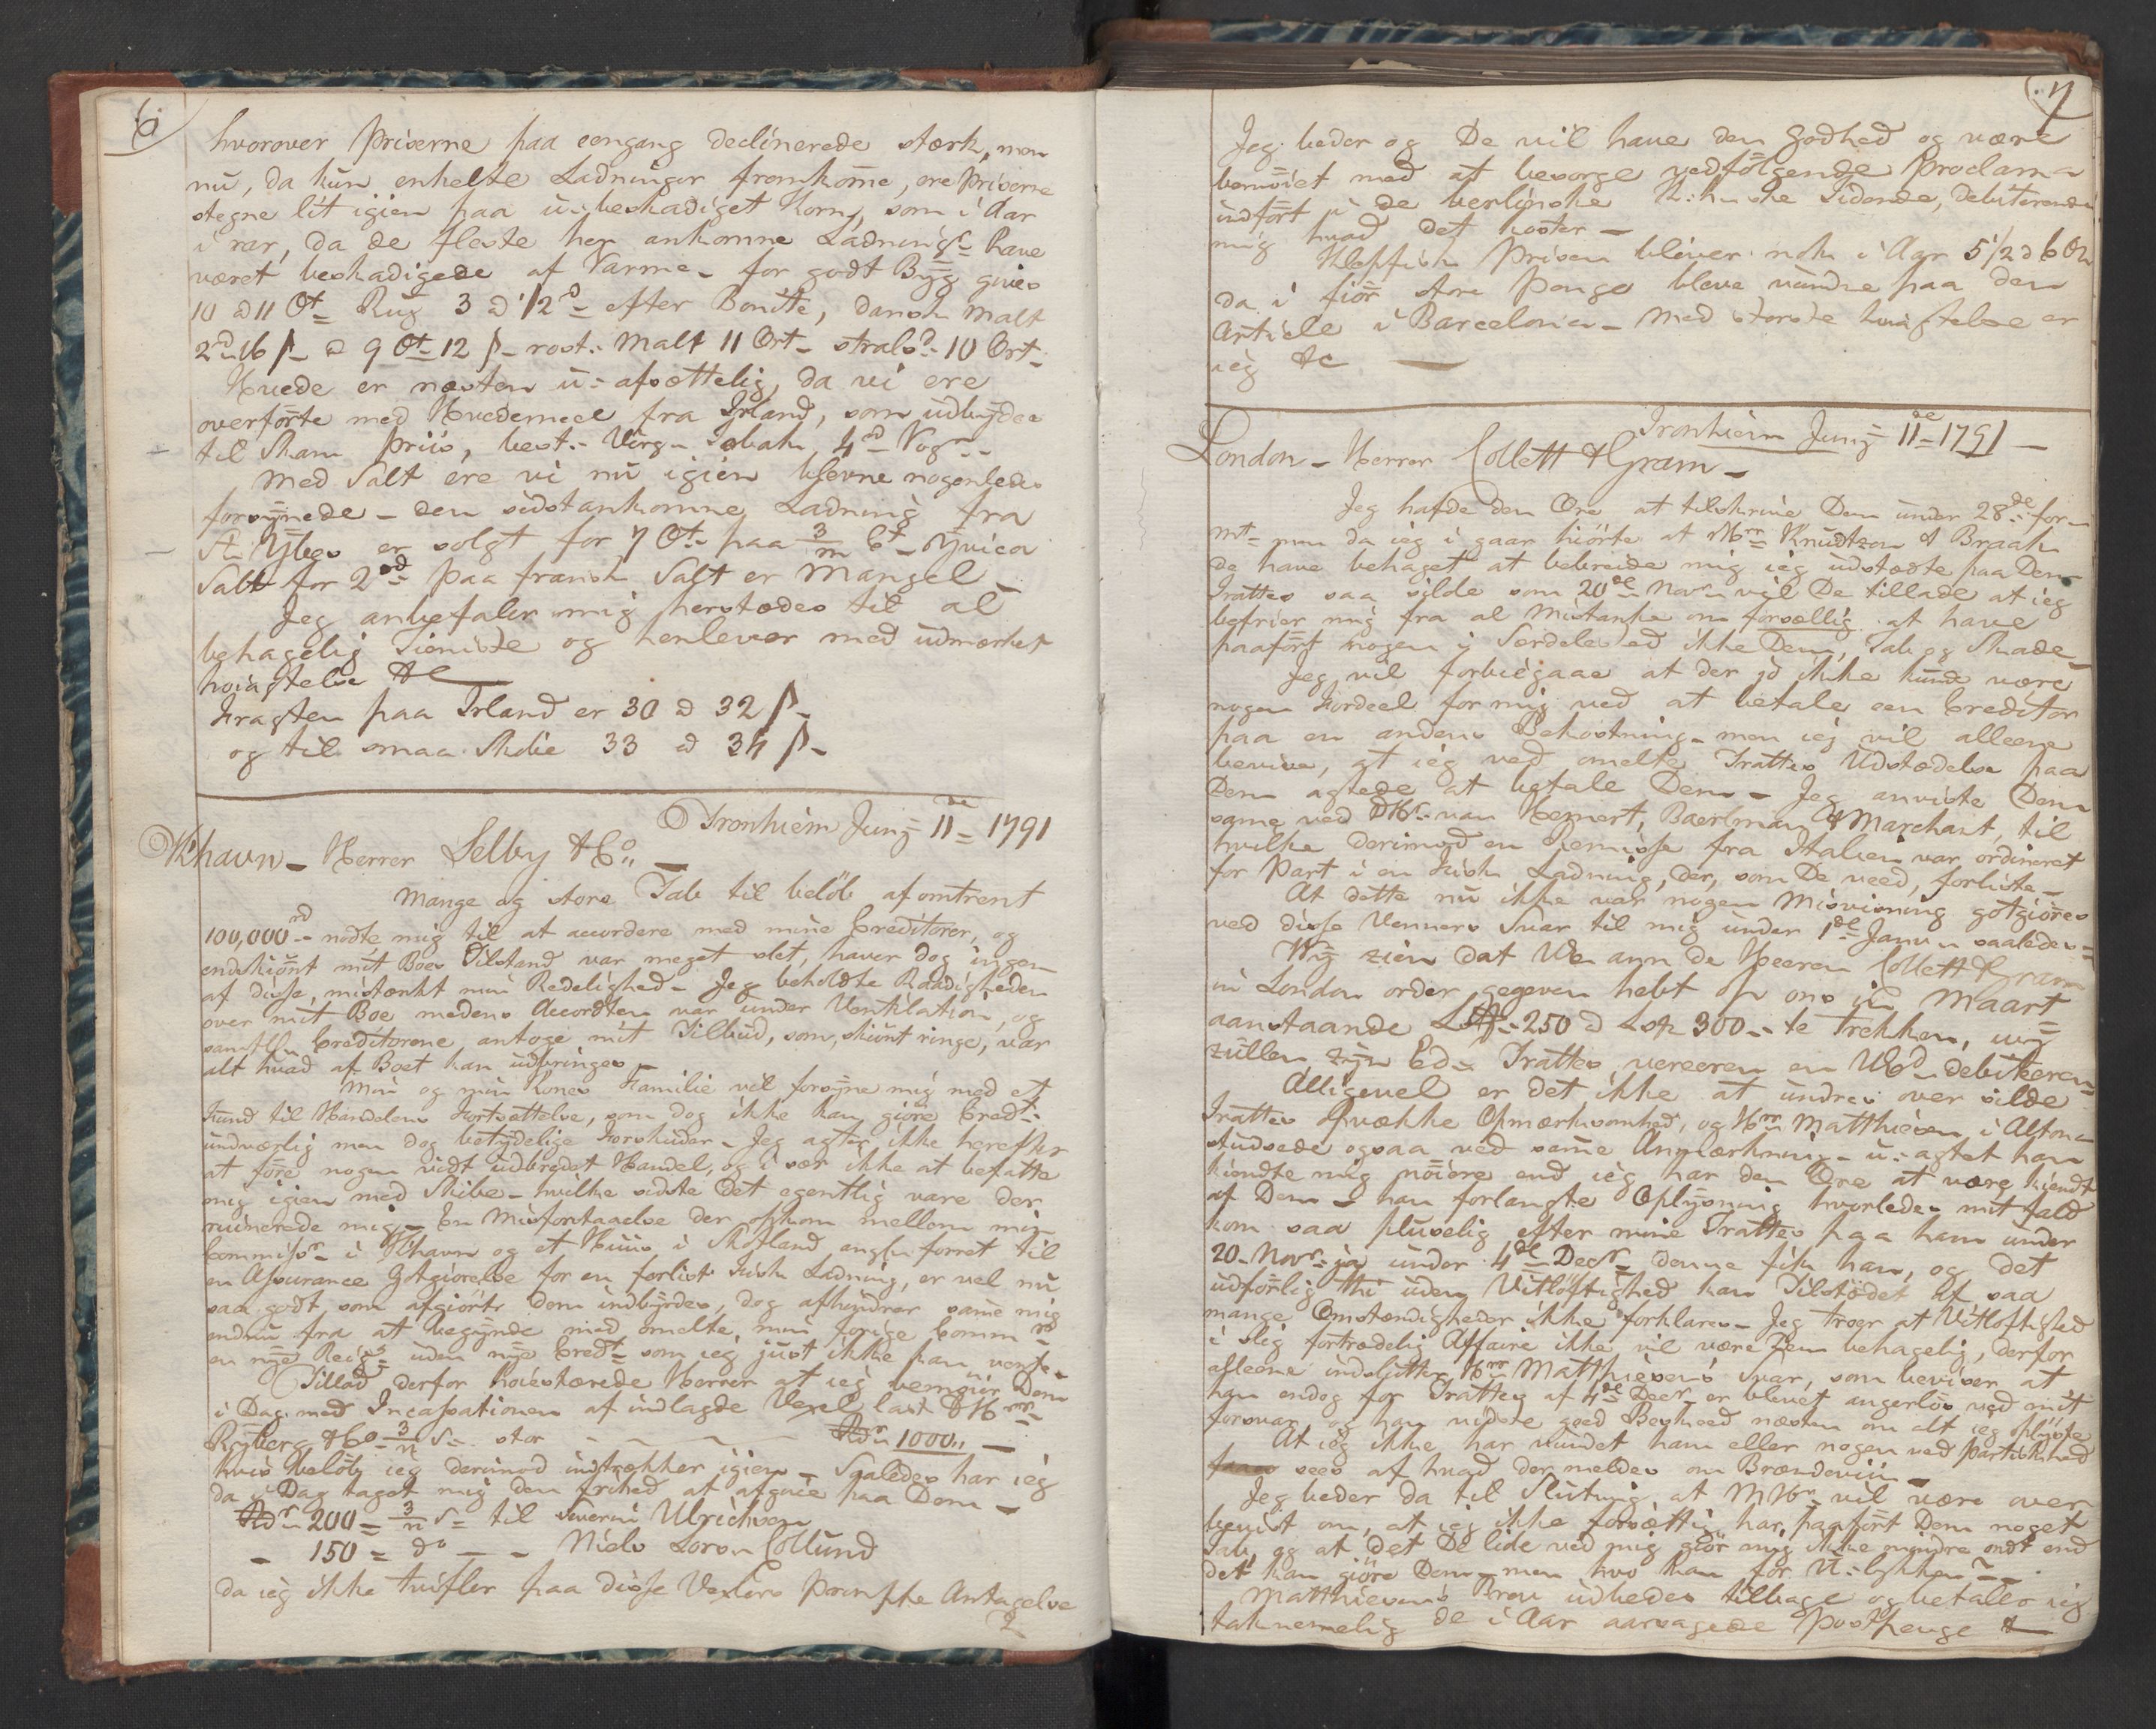 6
hvorover Priserne paa eengang declinerede stærk, men
nu, da kun enkelte Ladninger fremkom̄e, ere Priserne
stegne lit igien paa u-beskadiget Korn, som i Aar
i rar, da de fleste her ankomne Ladningr have
været beskadigede af Varme - for godt Byg gives
10 a 11 Ot Rug 3 a 1/2 d efter Bonite, dansk Malt
2 d 16 s - a 9 Ot 12 s - rost. Malt 11 Ort - strals: 10 Ort -
Hvede er næsten u-afsættelig, da vi ere
overförte med Hvedemeel fra Irland, som udbydes
til Skam Priis, best. Virgn Tobak 4 d Vogn -
Med Salt ere vi nu igien blevne nogenledes
forsÿnede - den sidstankomne Ladning fra
St Ybes er solgt for 7 Ot paa 3/m Ct - Yvica
Salt for 2 d paa fransk Salt er Mangel -
Jeg anbefaler mig herstædes til al
behagelig Tieniste og henlever med udmærket
høiagtelse &c
Fragten paa Irland er 30 a 32 s -
og til smaa Skibe 33 a 34 s -
Tronhiem Junÿ 11de 1791
Khavn - Herrer Selby & Co
Mange og store Tab til belöb af omtrent
100,000 rd nödte mig til at accordere med mine Creditorer, og
endskiönt mit Boes Tilstand var meget slet, haver dog ingen
af disse, mistænkt min Redelighed - Jeg beholdte Raadigheden
over mit Boe medens Accordten var under Ventilation, og
samtl. Creditorerne antoge mit Tilbud, som, skiönt ringe, var
alt hvad af Boet kan udbringes -
Min og min Kones Familie vil forsyne mig med et
Fund til Handelens Fortsættelse, som dog ikke kan giöre Credt
undværlig men dog betydelige Forskuder - Jeg agter ikke herefter
at före nogen vidt udbredet Handel, og i sær ikke at befatte
mig igien med Skibe - hvilke sidste det egentlig vare der
ruinerede mig - En Misforstaaelse der opkom mellem min
Commissr i Khavn og et Huus i Skotland angln forret til
en Assurance Gotgiörelse for en forlist Fisk Ladning, er vel nu
saa godt som afgiört dem indbyrdes, dog afhindrer sam̄e mig
endnu fra at begynde med omelte min forige Comm
en nye Regn uden nye Credt som ieg just ikke kan vente.
Tillad derfor höistærede Herrer at ieg bemöier Dem
i Dag med Incassationen af indlagde Vexel last D Hrrr
Ryberg & Co 3/n S= stor - - - - Rdr 1000,, -
hvis Belöb ieg derimod indtrækker igien - Saaledes har ieg
da i Dag taget mig den frihed at afgive paa Dem -
Rdr 200 = 3/n S= til Severin Ulrichsen
- 150 = do - - Niels Lorsn Collund
da ieg ikke tvifler paa disse Vexlers prompte Antagelse
7
Jeg beder og De vil have den Godhed og være
bemöiet med at besorge vedfölgende Proclama
indfört i de berlingske K.huske Tidende, debiterende
mig hvad det koster -
Klepfisk Prisen bliver nok i Aar 5 1/2 a 6 Ot
da i fiör store Penge bleve vundne paa den
Article i Barcelona - Med störste höiagtelse er
ieg &c
Tronhiem Junÿ 11de 1791 -
London - Herrer Collett & Gram -
Jeg hafde den Ære at tilskrive Dem under 28de for-
mt - men da ieg i gaar hiörte at Hrr Knudtzon & Braak
de have behaget at bebreide mig ieg udstædte paa Dem
Tratter saa silde som 20de Novr vil De tillade at ieg
befrier mig fra al Mistanke om forsætlig at have
paafört nogen i Særdeleshed ikke Dem, Tab og Skade -
Jeg vil forbiegaae at der jo ikke kunde være
nogen Fordeel for mig ved at betale een Creditor
paa en andens Bekostning - men ieg vil alleene
bevise, at ieg ved omelte Tratters Udstædelse paa
Dem agtede at betale Dem - Jeg anviste Dem
sam̄e ved DHr van Hemert, Baerlman & Marchant, til
hvilke derimod en Remisse fra Italien var ordineret
for Part i en Fisk Ladning, der, som De veed, forliste -
At dette nu ikke var nogen Misviisning gotgiöres
ved disse Venners Svar til mig under 1de Janv saaledes =
Wÿ zien dat UE ann de Heeren Collett Gram
in London order gegeven hebt op ons in Maart
aanstaande Lst 250 a Lst 300 - te Trekken, wÿ
zullen zÿn Ed - Trattes vereeren en UEd debiteeren
Alligevel er det ikke at undres over silde
Tratter opvække Opmærksomhed, og Hrr Matthiesen i Altona
studsede ogsaa ved sam̄e Anmærkning - u-agtet han
kiendte mig nöiere end ieg har den Ære at være kiendt
af Dem - han forlangte Oplysning hvorledes mit fald
kom saa pludselig efter mine Tratter paa ham under
20 - Novr ja under 4de Decr denne fik han, og det
udförlig thi uden Vitlöftighed kan Tilstödet af saa
mange Omstændigheder ikke forklares - Jeg troer at Vitlöftighed
i slig fortrædelig Affaire ikke vil være Dem behagelig, derfor
alleene indslutter Hrr Matthiesens Svar, som beviser at
han endog for Tratten af 4de Decr er blevet angerlös ved mit
forsvar, og han vidste
At ieg ikke har undet ham eller nogen ved Partiskhed
sees af hvad der meldes om Brændeviin -
Jeg beder da til Slutning at MHr vil være over-
bevist om, at ieg ikke forsættig har paafört Dem noget
Tab, og at det De lide ved mig giör mig ikke mindre ondt end
det kan giöre Dem - men hvo kan for U-lykken - -
Matthiesens Brev udbedes tilbage og betaler ieg
taknemelig de i Aar aarsagede Postpenge &